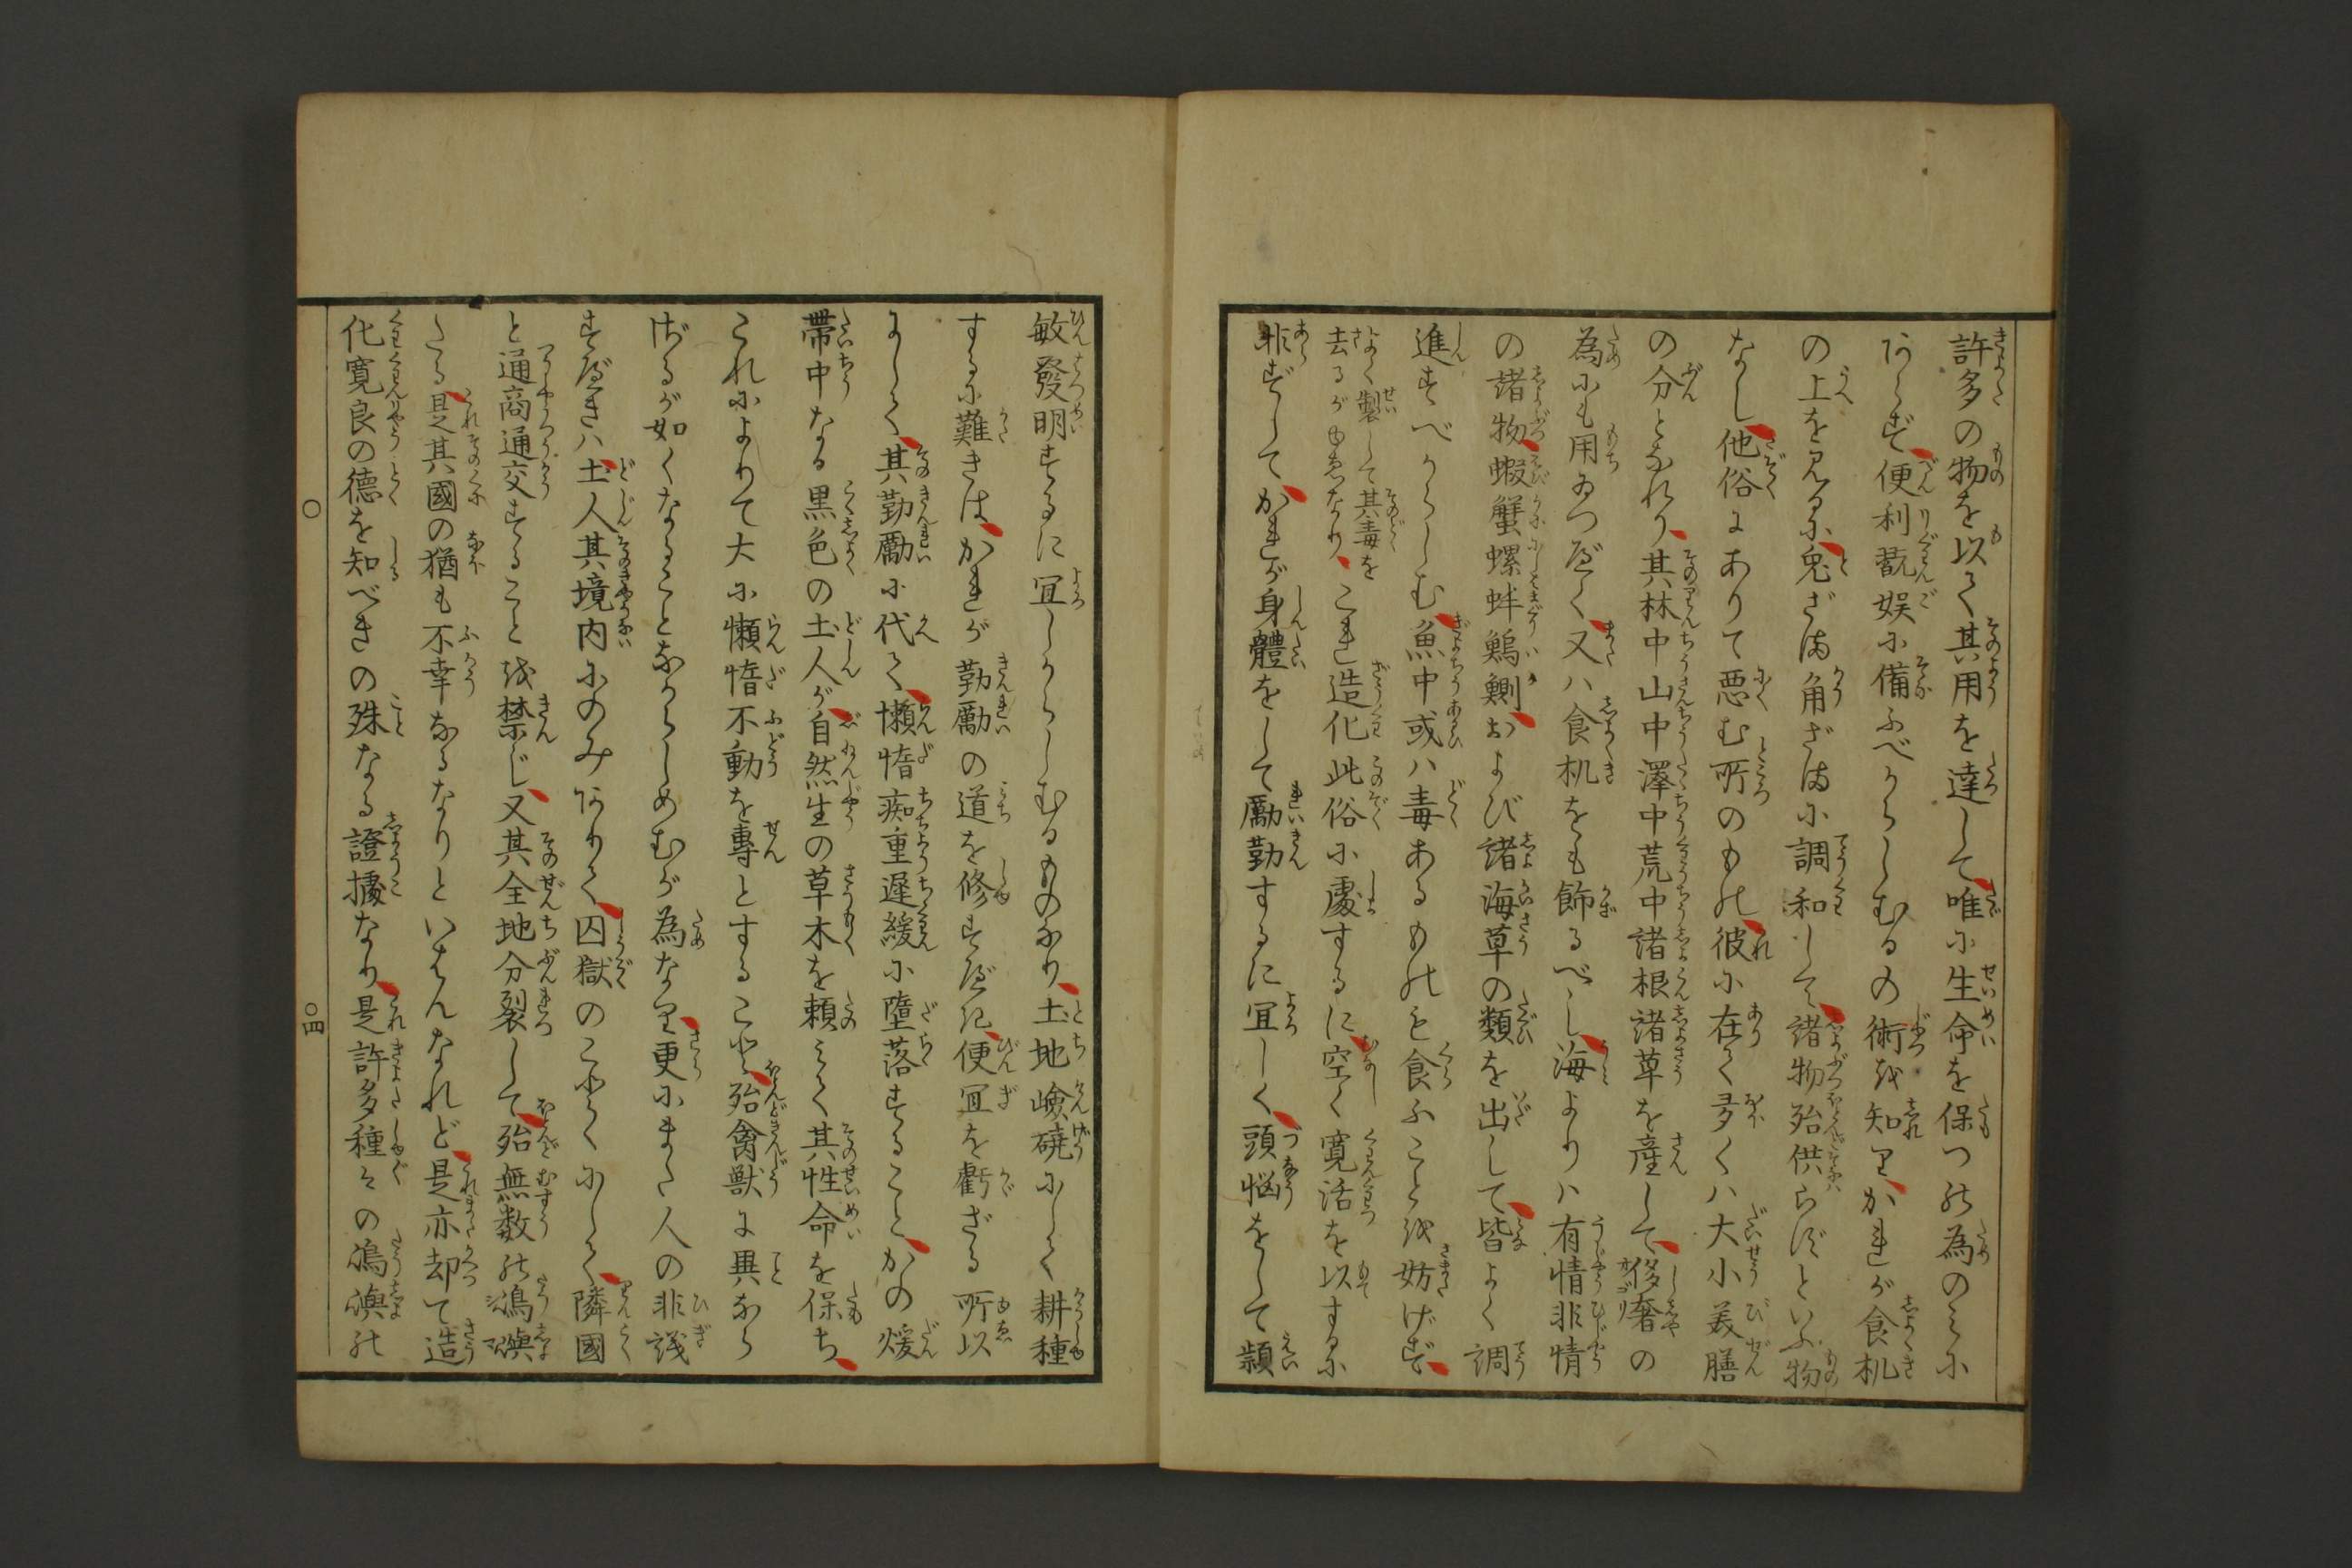 許多の物を以て其用を達して唯に生命を保つ能為のミに
あらず便利翫娯に備ふべからしむるの術を知りかれが食机
の上を見るに兔ざま角ざまに調和して諸物殆供らずといふ物
なし他俗にありて悪む所のもの彼に在て多くハ大小美膳
の分となれり其林中山中澤中荒中諸根諸草を産して侈奢の
為にも用ゐつべく又ハ食机をも飾るべし海よりハ有情非情
の諸物蝦蟹螺蚌鰞鰂および諸海草の類を出して皆よく調
進すべからしむ魚中或ハ毒あるものを食ふことを妨げず
よく製して其毒を
去るが由ゑなり
これ造化此俗に處するに空く寛活を以するに
非ずしてかれが身體をして勵勤するに宜しく頭悩をして頴
敏發明するに宜しからしむるものなり土地嶮磽にして耕種
するに難きはかれが勤勵の道を修すべき便宜を虧ざる所以
にして其勤勵に代て懶惰痴重遲緩に墮落すること かの煖
帶中なる黒色の土人が自然生の草木を頼ミて其性命を保ち
これによりて大に懶惰不動を專とすること殆禽獣に異なら
ざるが如くなることなからしめむが為なり更にまた人の非議
すべきハ土人其境内にのみありて囚獄のごとくにして隣國
と通商通交すること を禁じ又其全地分裂して殆無数の島嶼
たる是其國の猶も不幸なるなりといはんなれど是亦却て造
化寛良の德を知べきの殊なる證據なり是許多種々の島嶼の
〇四